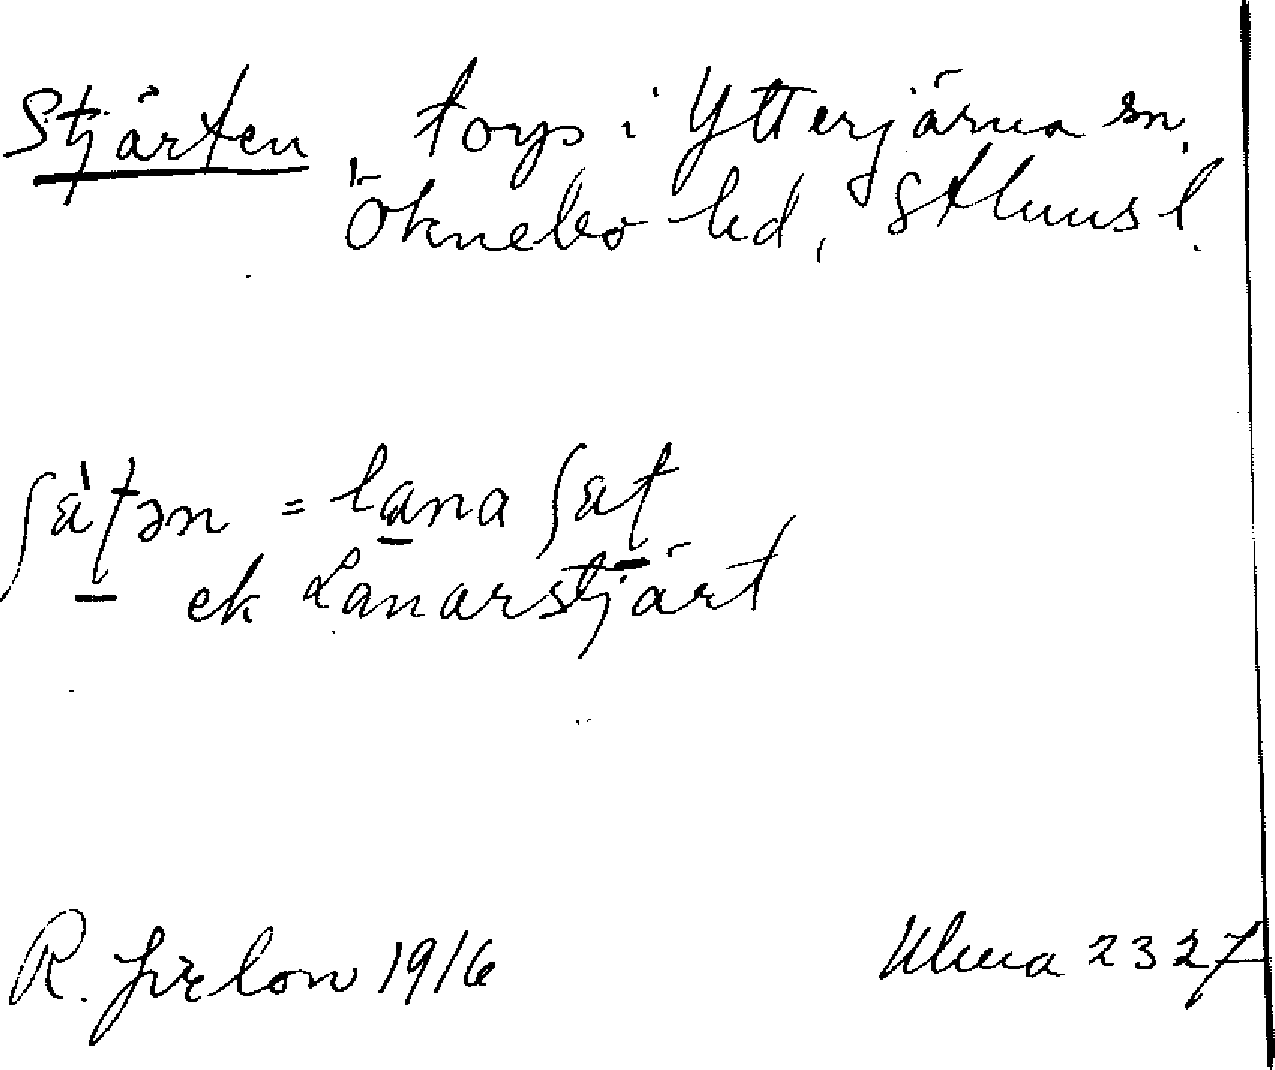 Stjärten torp i Ytterjärna sn,
Öknebo hd, Sthlms l.
ʃàt̠ən = la̠na ʃat̠
ek Lanarstjärt
R. Jirlow 1916 Ulma 2327